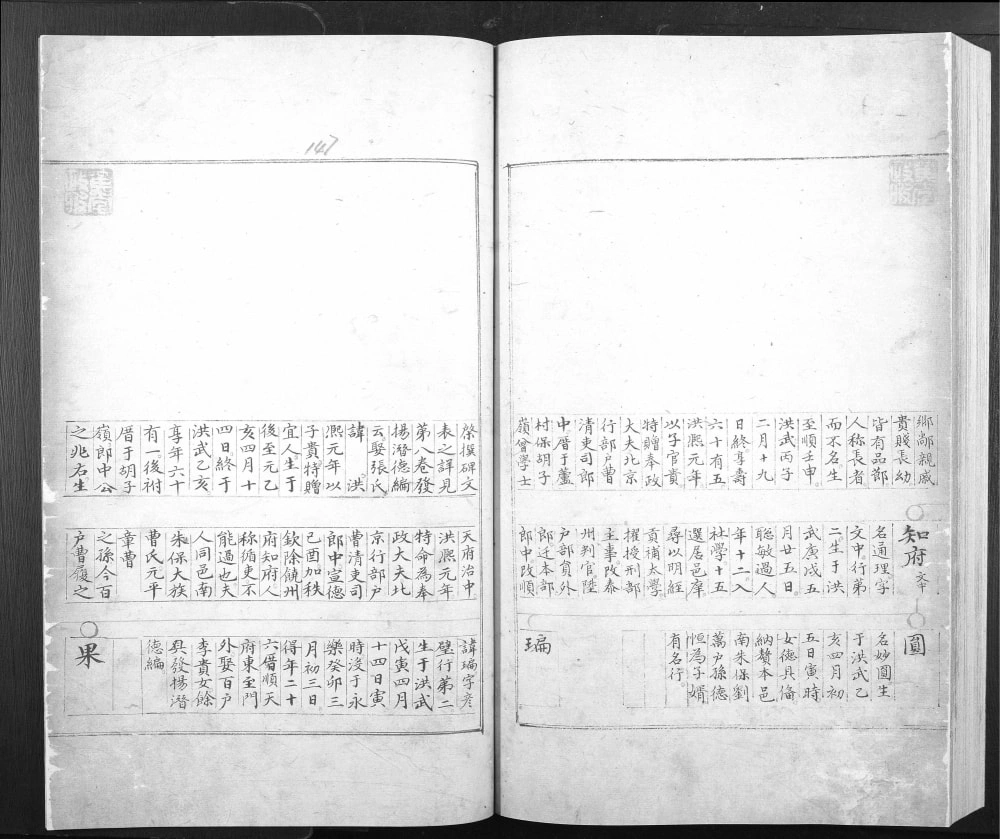 鄉鄰親戚
貴賤長幼
皆有品節
人稱長者
而不名生
至順壬申
洪武丙子
二月十九
日終享壽
六十有五
洪熙元年
以子官貴
特贈奉政
大夫北京
行部户曹
清吏司郎
中厝于蘆
村保胡子
嶺曾學士
棨撰碑文
表之詳見
第八卷發
揚潛德編
云娶張氏
諱 洪
熙元年以
子貴特贈
宜人生于
後至元乙
亥四月十
四日終于
洪武乙亥
享年六十
有一後祔
厝于胡子
嶺郎中公
之兆右生
知府
名通理字
文中行弟
二生于洪
武庚戌五
月廿五日
聡敏過人
年十二入
社學十五
選居邑庠
尋以明經
貢補太學
擢授刑部
主事改泰
州判官陞
户部員外
郎迁本部
郎中改順
天府治中
洪熙元年
特命為奉
政大夫北
京行部户
曹清吏司
郎中宣德
己酉加秩
欽除饒州
府知府人
称循吏不
能過也夫
人同邑南
朱保大族
曹氏元平
章曹
之孫今百
户曹履之
圓
名妙圓生
于洪武乙
亥四月初
五日寅時
女德具俻
納贅本邑
南朱保劉
萬户孫德
恒為子婿
有名行
㻞
諱㻞字彦
璧行第二
生于洪武
戊寅四月
十四日寅
時沒于永
樂癸卯三
月初三日
得年二十
六厝順天
府東至門
外娶百户
李貴女餘
具發揚潛
德編
果
147